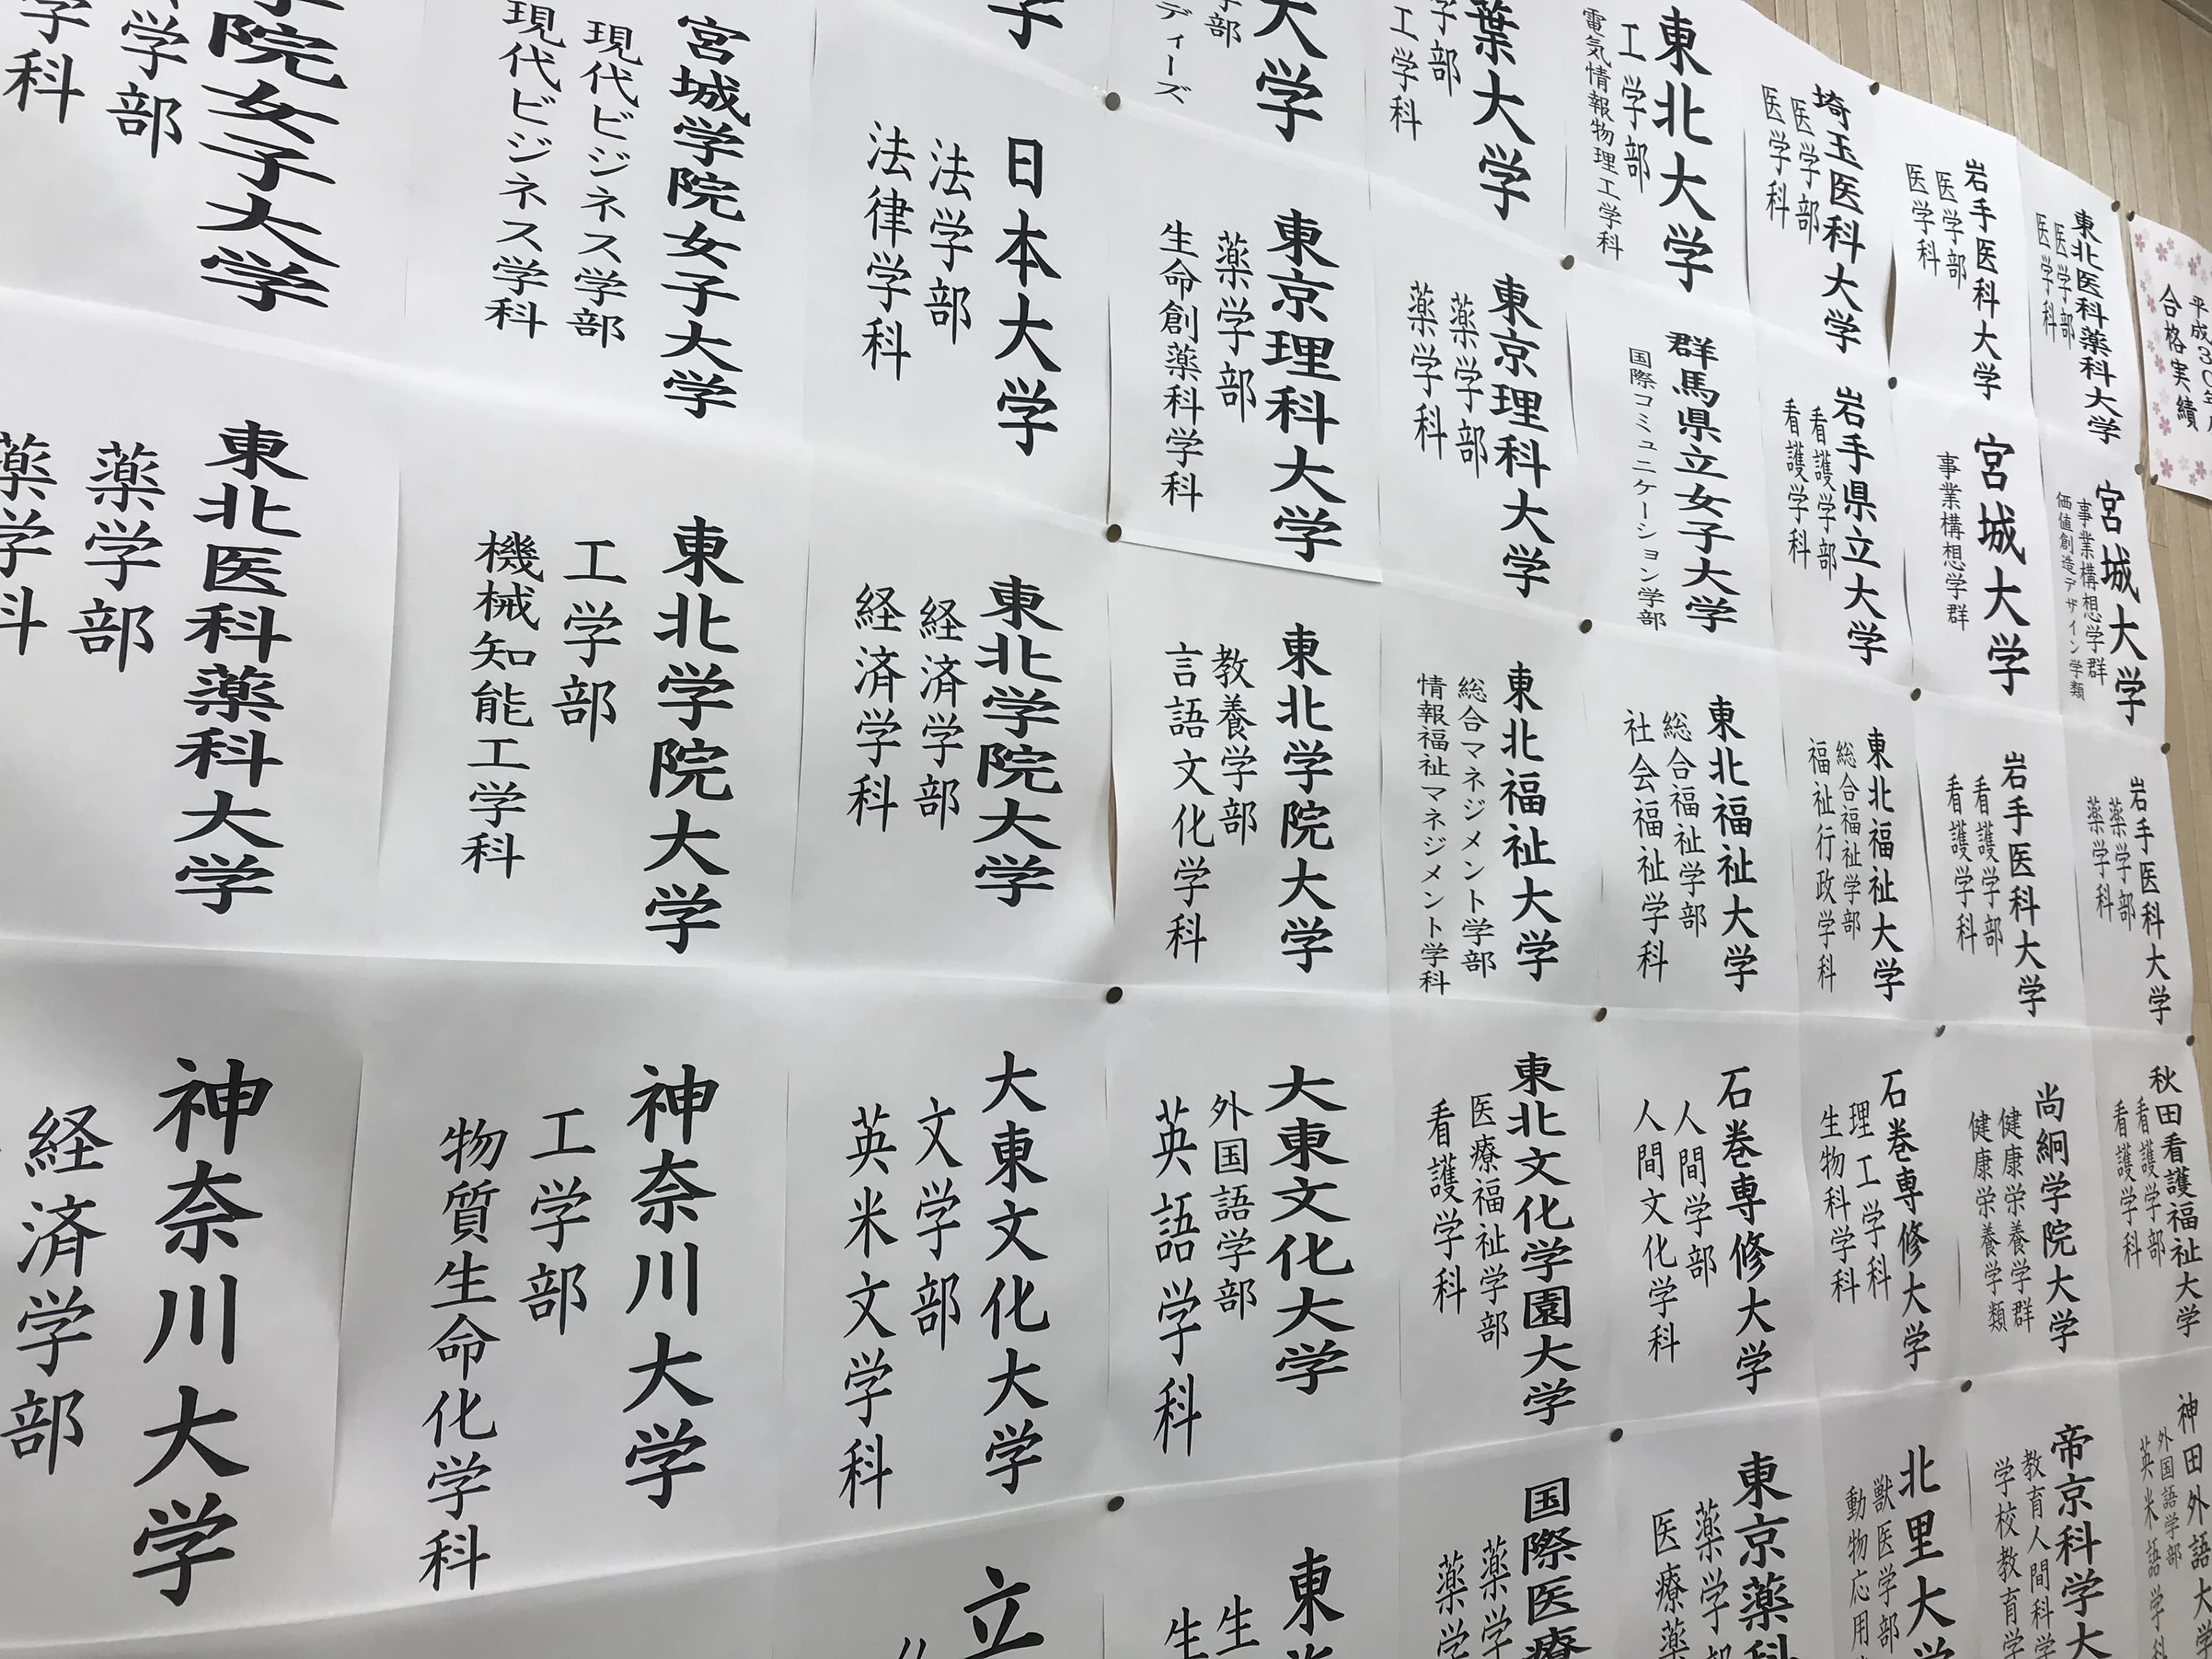 平成30年度
合格実績
東北医科薬科大学
医学部
医学科
岩手医科大学
医学部
医学科
埼玉医科大学
医学部
医学科
東北大学
工学部
電気情報物理工学科
葉大学
学部
工学科
大学
学部
ディーズ
子
宮城大学
事業構想学群
価値創造デザイン学類
宮城大学
事業構想学群
岩手県立大学
看護学部
看護学科
群馬県立女子大学
国際コミュニケーション学部
東京理科大学
薬学部
薬学科
東京理科大学
薬学部
生命創薬科学科
日本大学
法学部
法律学科
宮城学院女子大学
現代ビジネス学部
現代ビジネス学科
学院女子大学
学部
学科
岩手医科大学
薬学部
薬学科
岩手医科大学
看護学部
看護学科
東北福祉大学
総合福祉学部
福祉行政学科
東北福祉大学
総合福祉学部
社会福祉学科
東北福祉大学
総合マネジメント学部
情報福祉マネジメント学科
東北学院大学
教養学部
言語文化学科
東北学院大学
経済学部
経済学科
東北学院大学
工学部
機械知能工学科
東北医科薬科大学
薬学部
薬学科
秋田看護福祉大学
看護学部
看護学科
尚絅学院大学
健康栄養学群
健康栄養学類
石巻専修大学
理工学科
生物科学科
石巻専修大学
人間学部
人間文化学科
東北文化学園大学
医療福祉学部
看護学科
大東文化大学
外国語学部
英語学科
大東文化大学
文学部
英米文学科
神奈川大学
工学部
物質生命化学科
神奈川大学
経済学部
神田外語大学
外国語学部
英米語学科
帝京科学大
教育人間科学
学校教育学
北里大学
獣医学部
動物応用
東京薬科
薬学部
医療薬
国際医療
薬学
薬学
東
生
生
立